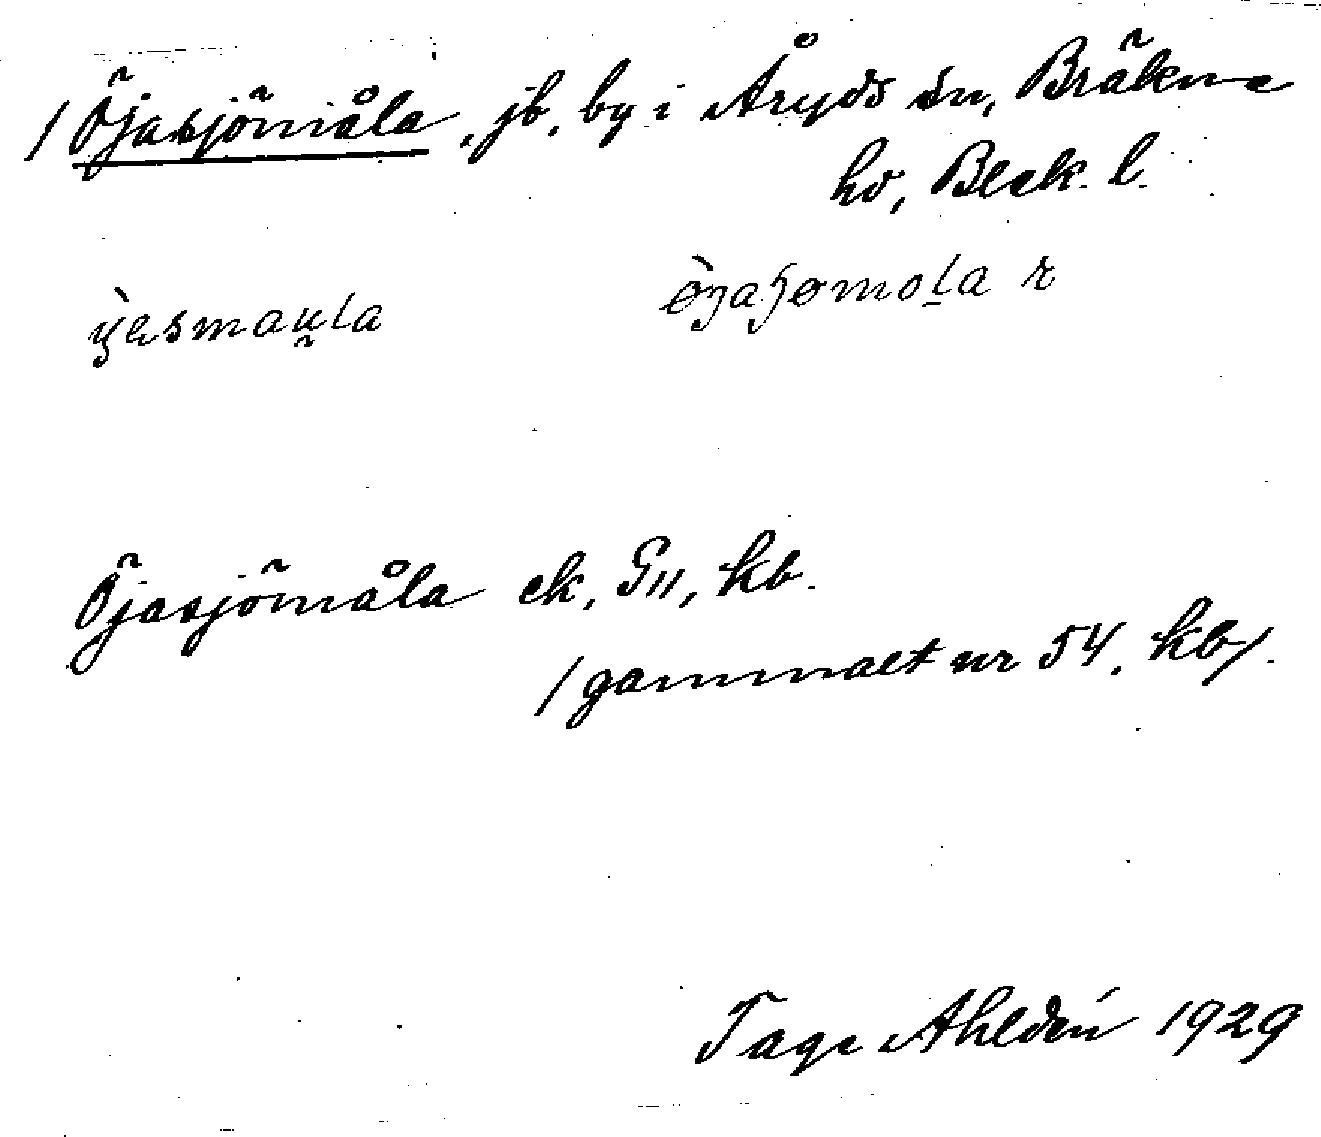 / Öjasjömåla, jb, by i Åryds sn, Bräkne
hd, Blek. l.
Öjasjömåla ek, G11, kb.
/gammalt nr 54, kb/.
Tage Ahldén 1929